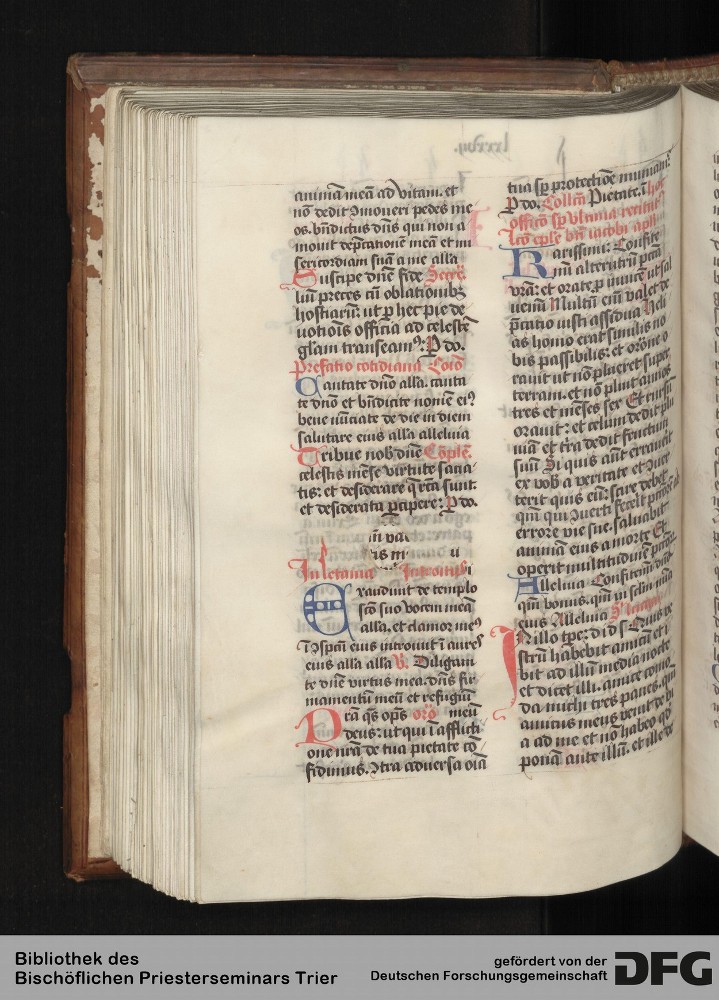 animā meā ad vitam. et
nō dedit ꝯmoveri pedes me
os. bn̄dictus dn̄s qui non a
mouit dep̄cationē meā et mi
sericordiam suā a me alla
Suscipe dn̄e sc̄e Secr̄
liū preces cū oblationibꝫ
hostiarū: ut p hec pie de
uotiōis officia ad celestē
gl̄am transeamꝰ: P do.
Prefatio cotidiana Coīo
Cantate dn̄o alla. canta
te dn̄o et bn̄dicite nomē eiꝰ
bene nūciate de die in diem
salutare eius alla alleluia
Tribue nob̄ dn̄e Cōple.
celestis mēse virtute sacia
tis: et desiderare q̄ rc̄a sunt.
et desiderata p̄cipere: P do.
In letania Introitus
Exaudiuit de templo
sc̄o suo vocem meā
alla. et clamor meꝰ
ī ꝯspcū eius introiuit ī aures
eius alla alla V. Diligam
te dn̄e virtus mea. dn̄s fir
mamentū meū et refugiū
Prā q̄s op̄s orō meū
deus: ut qui ī afflicti
one nr̄a de tua pietate cō
fidimus. ꝯtra aduersa oīa
tua sp̄ protectiōe muniamꝰ.
P do. Collcā Pietate. ī hoc
offico sp̄ vltima recitatꝰ
Lc̄o epl̄e bn̄ iacobi apl̄i
Karissimi: Confite
mī alterutrū pc̄cā
vr̄a: et orate p īuicē ut sal
uemī Multū eī valet de
p̄catio iusti assidua Heli
as homo erat similis no
bis passibilis: et orōne o
rauit ut nō plueret super
terram. et nō pluit annos
tres et mēses sex Et rursū
orauit: et celum dedit plu
uiā et tr̄a dedit fructum
suū Si quis aūt errauerit
ex vob̄ a veritate et ꝯuer
terit quis eū: scire debet
qm̄ qui ꝯuerti fecerit pctōrē ab
errore vie sue. saluabit
animā eius a morte Et
operit multitudinē pctōꝝ
Alleluia Confitemī dn̄o
qm̄ bonus. qm̄ in sc̄lm mīa
eius Alleluia S' lucam
In illo tp̄e: d i d s Quis ve
strū habebit amicū et i
bit ad illū media nocte
et dicet illi. amice como
da michi tres panes. qm̄
amicus meus venit de vi
a ad me et nō habeo qd
ponā ante illū. et ille de
Bibliothek des
Bischöflichen Priesterseminars Trier
gefördert von der
Deutschen Forschungsgemeinschaft
DFG